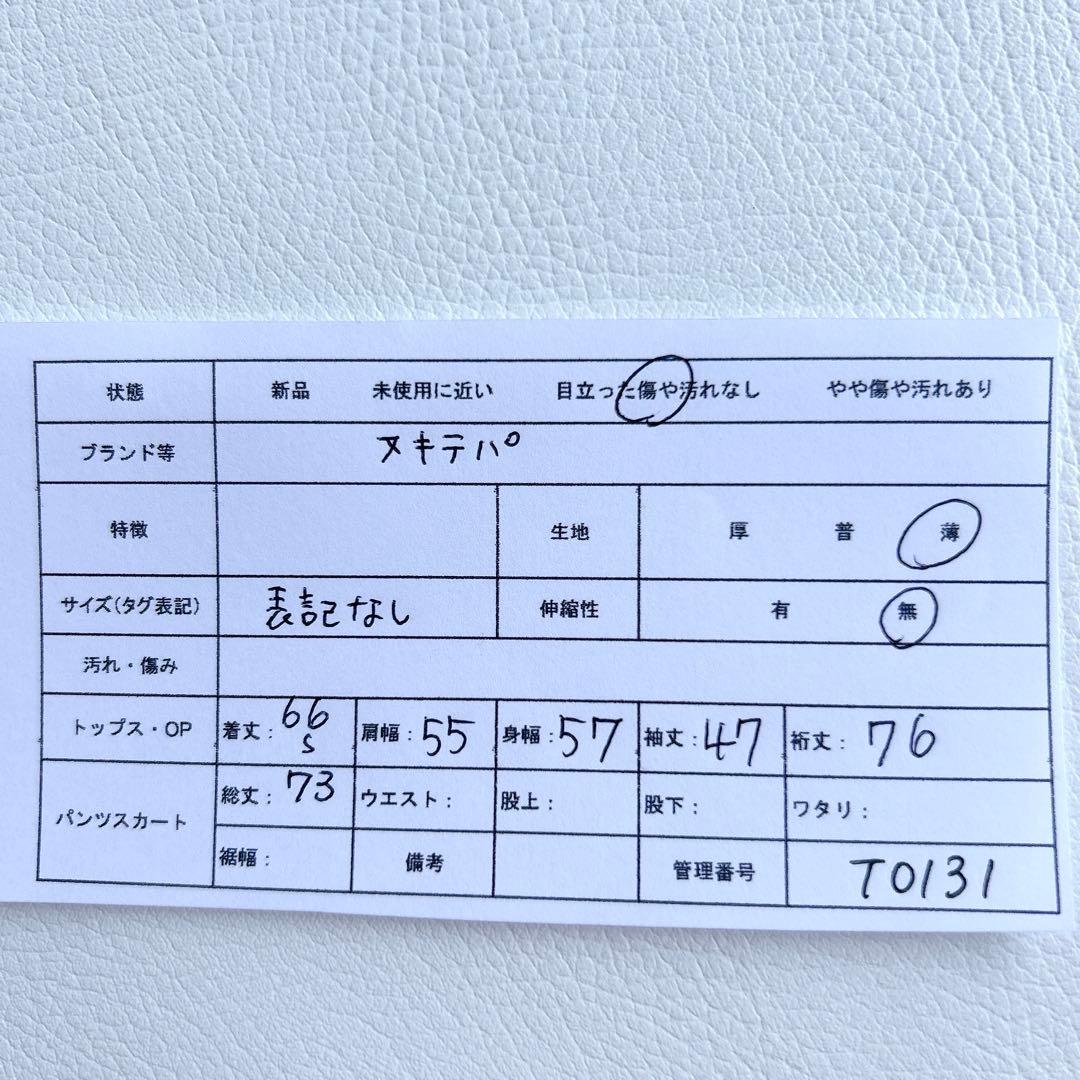 状態 新品 未使用に近い 目立った傷や汚れなし やや傷や汚れあり
ブランド等 ヌキテパ
特徴 生地 厚 普 薄
サイズ(タグ表記) 表記なし 伸縮性 有 無
汚れ・傷み
トップス・OP 着丈:66 肩幅:55 身幅:57 袖丈:47 裄丈:76
s
パンツスカート 総丈:73 ウエスト: 股上: 股下: ワタリ:
裾幅: 備考 管理番号 T0131